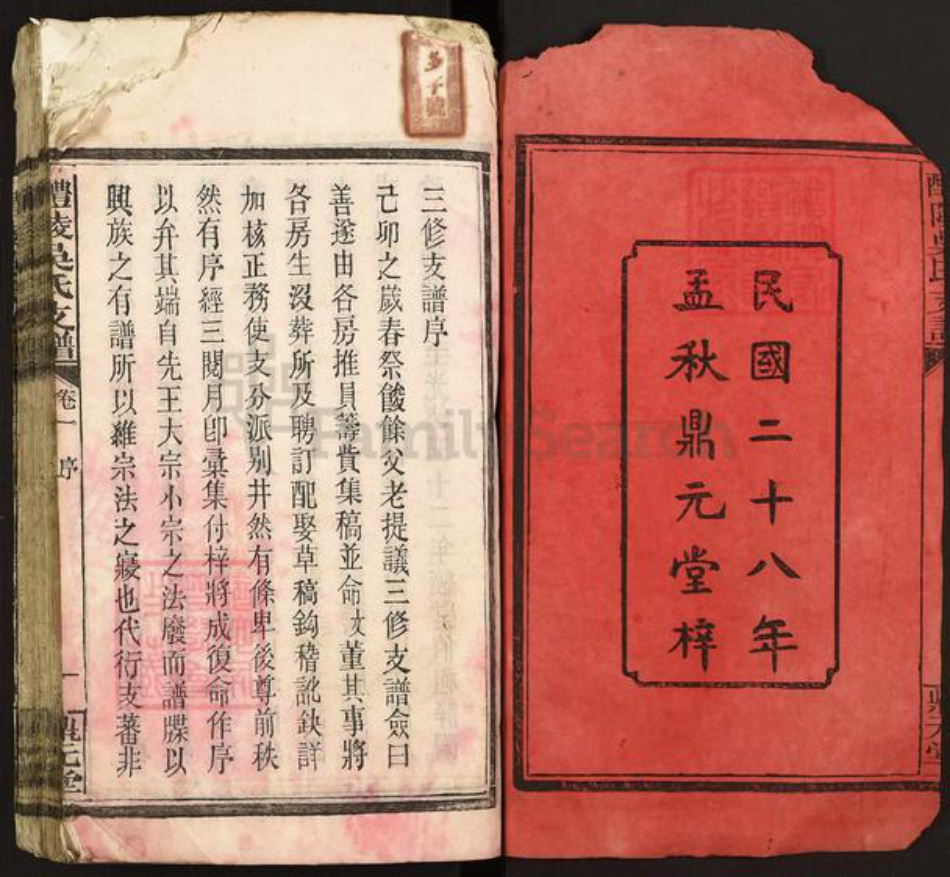 民國二十八年
孟秋鼎元堂梓
三修支譜序
己卯之歲春祭餕餘父老提議三修支譜僉曰
善遂由各房推員籌費集稿並命汶董其事將
各房生沒葬所及聘訂配娶草稿鈎稽訛缺詳
加核正務使支分派別井然有條卑後尊前秩
然有序經三閱月卽彙集付梓將成復命作序
以弁其端自先王大宗小宗之法廢而譜牒以
興族之有譜所以維宗法之寢也代衍支蕃非
醴陵吳氏支譜
卷一 序
一
鼎元堂
FamilySearch